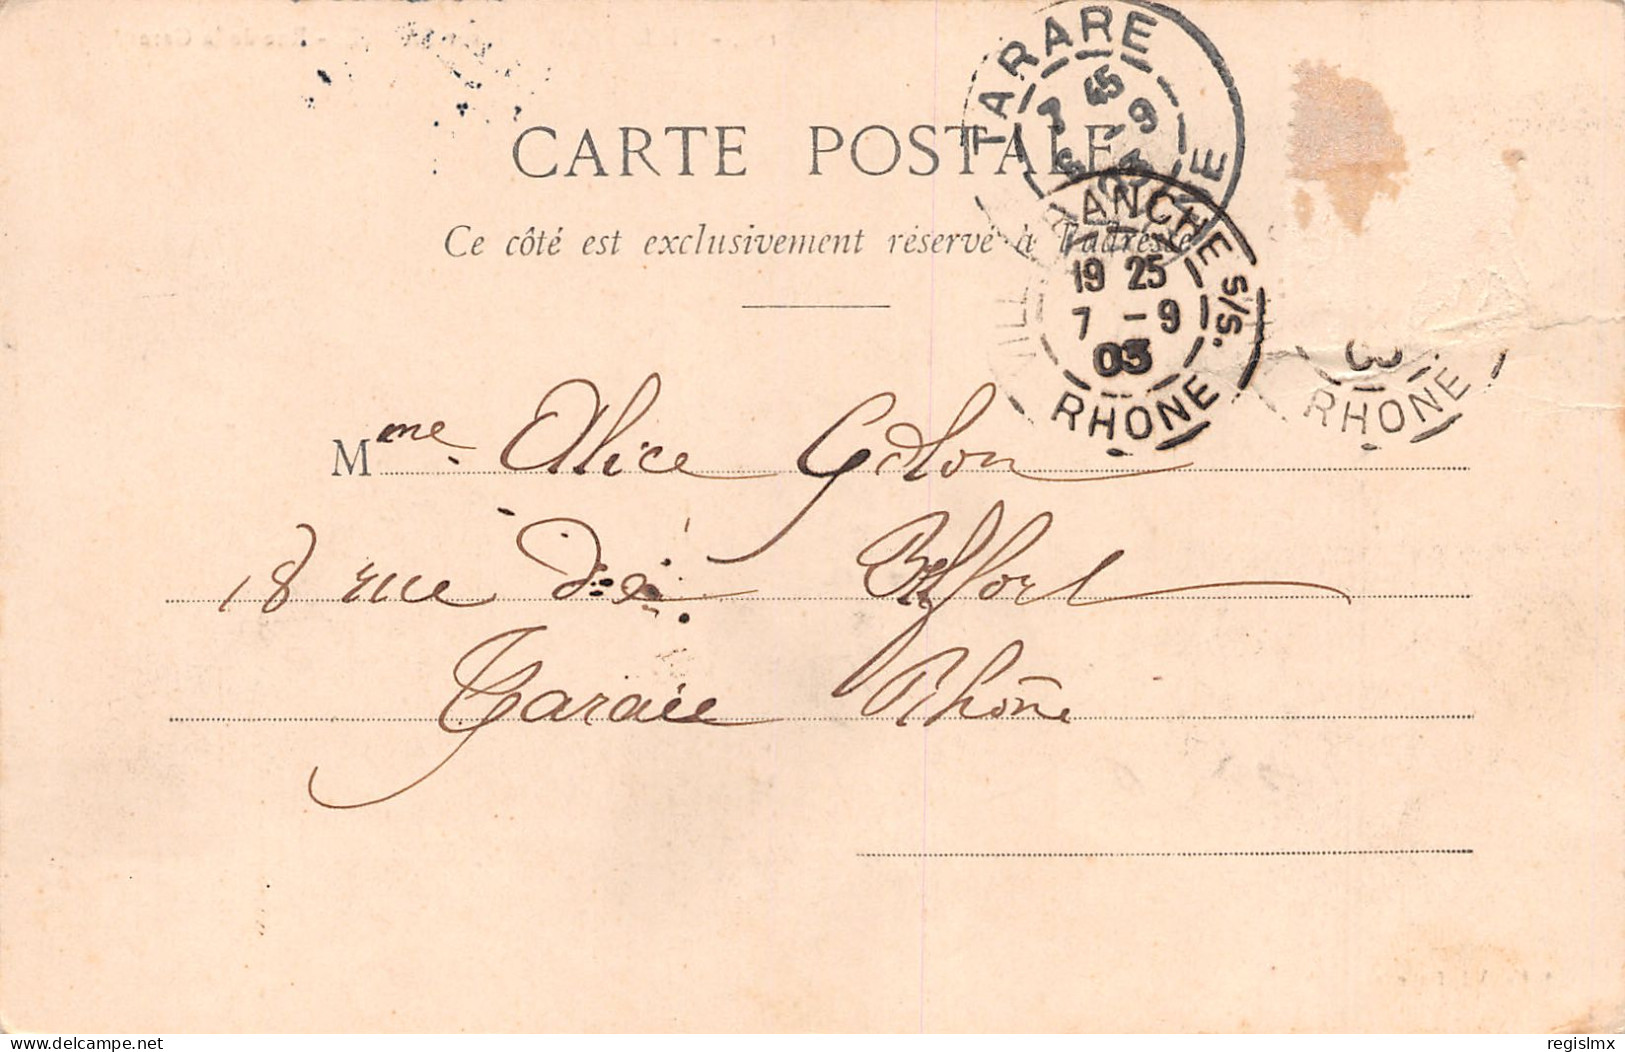 CARTE POSTALE
Ce côté est exclusivement réservé à l'adresse
TARARE
7 45
9
RHONE
ANCHE S/S.
19 25
7 - 9
03
RHONE
RHONE
Mme Alice Golon
18 rue de Belfort
Tarare Rhône
delcampe.net
regislmx